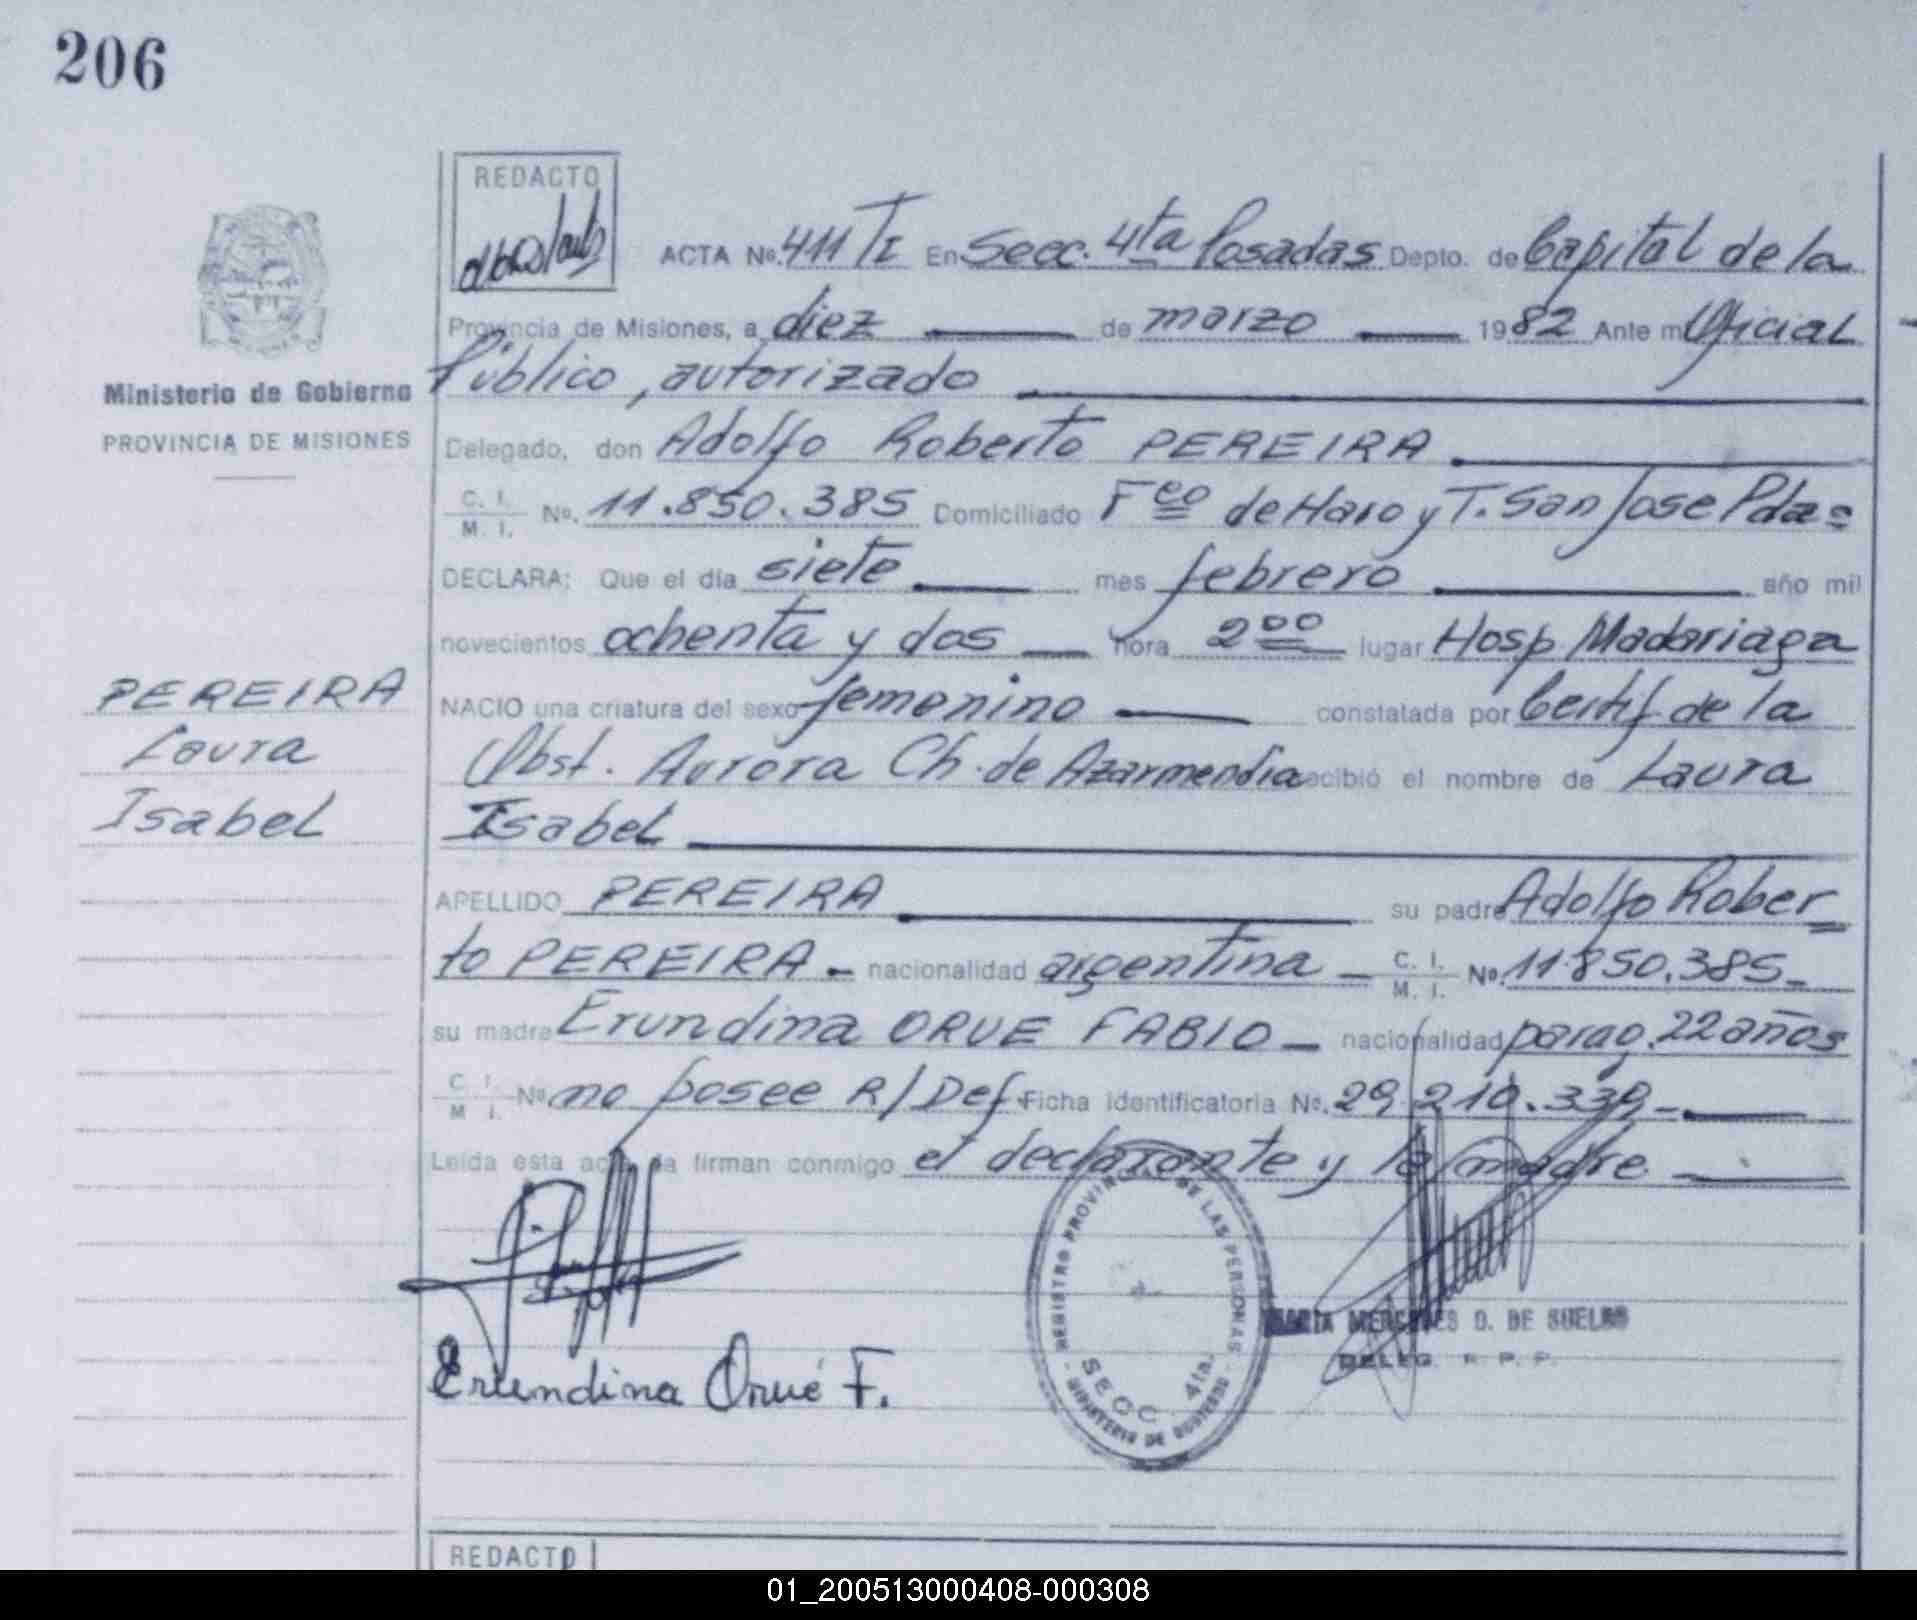 206
REDACTO
ACTA Nº. 411 TI En Secc. 4ta Posadas Depto. de Capital de la
Provincia de Misiones, a diez de marzo 1982 Ante mi Oficial
Ministerio de Gobierno
Público, autorizado
PROVINCIA DE MISIONES
Delegado, don Adolfo Roberto PEREIRA
C. I. / M. I. Nº. 11.850.385 Domiciliado Fco de Haro y T. San Jose Pdas
DECLARA: Que el día siete mes febrero año mil
novecientos ochenta y dos hora 2 00 lugar Hosp Madariaga
PEREIRA
NACIO una criatura del sexo femenino constatada por Certif. de la
Laura
Obst. Aurora Ch. de Azarmendia recibió el nombre de Laura
Isabel
Isabel
APELLIDO PEREIRA su padre Adolfo Rober
to PEREIRA - nacionalidad argentina - C. I. / M. I. Nº. 11.850.385-
su madre Erundina ORUE FABIO - nacionalidad parag. 22 años
C. I. / M. I. Nº. no posee R/Def. Ficha Identificatoria Nº. 29.210.339-
Leída esta acta la firman conmigo el declarante y la madre
REGISTRO PROVINCIAL DE LAS PERSONAS
SECC. 4ta.
MINISTERIO DE GOBIERNO
MARIA MERCEDES D. DE SUELDO
DELEG. R. P. P.
Erundina Orué F.
REDACTO
01_200513000408-000308